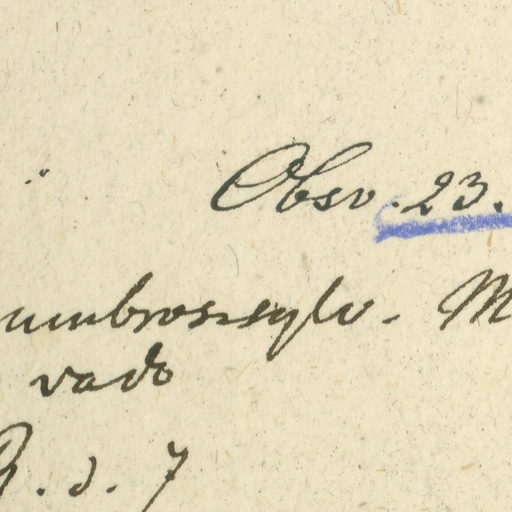 Obsv. 23.
umbrossylv. M
vado
R. d. 7